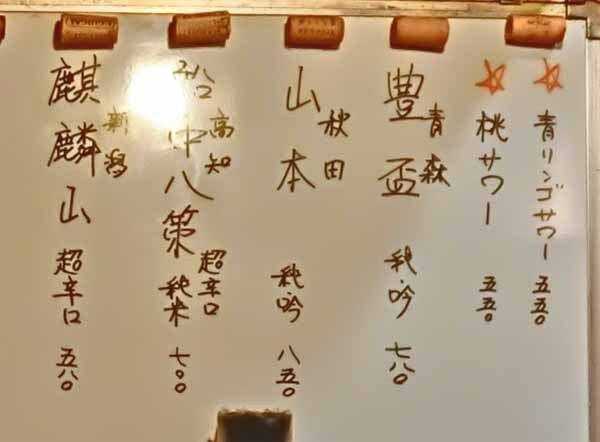 ☆ 青リンゴサワー 五五〇
☆ 桃サワー 五五〇
豊盃 青森 純吟 七八〇
山本 秋田 純吟 八五〇
船中八策 高知 超辛口 純米 七〇〇
麒麟山 新潟 超辛口 五八〇